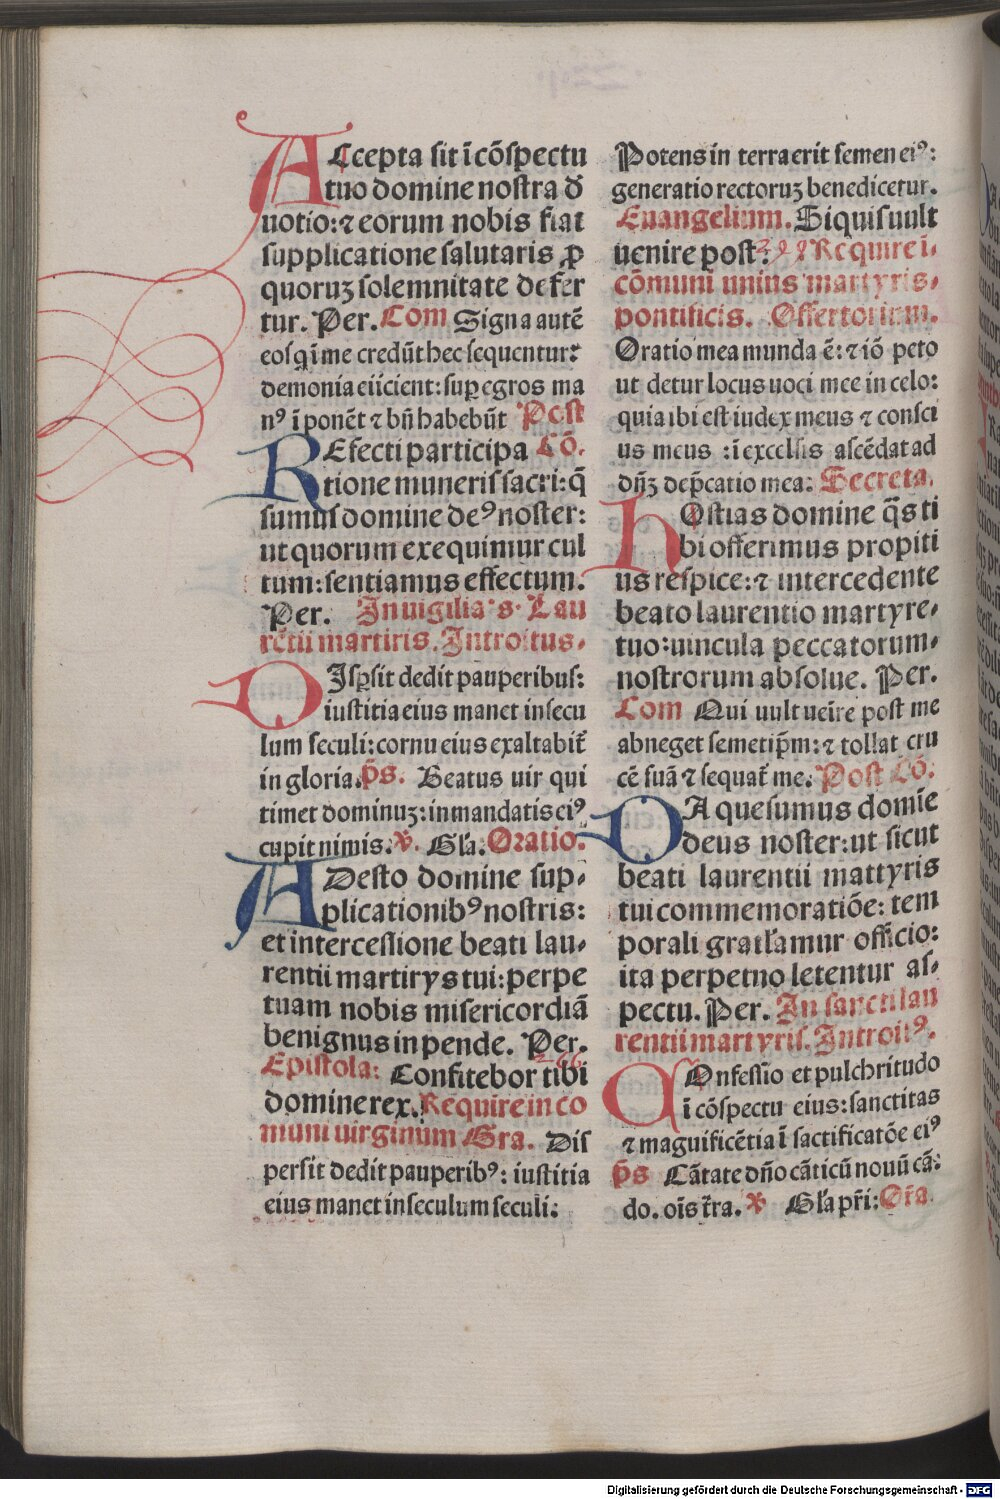 ACcepta sit ĩ cõspectu
tuo domine nostra đ
uotio: ⁊ eorum nobis fiat
supplicatione salutaris ꝓ
quoruȝ solemnitate defer
tur. Per. Com Signa autẽ
eos qͥ ĩ me credũt hec sequentur:
demonia eiicient: suꝑ egros ma
nꝰ ĩponẽt ⁊ bñ habebũt Post
REfecti participa Cõ.
tione muneris sacri: q̃
sumus domine deꝰ noster:
ut quorum exequimur cul
tum: sentiamus effectum.
Per. In uigilia s. Lau
rẽtii martiris. Introitus.
DIspsit dedit pauperibus:
iustitia eius manet in secu
lum seculi: cornu eius exaltabit̃
in gloria. p̃s. Beatus uir qui
timet dominuȝ: in mandatis eiꝰ
cupit nimis. ꝟ. Gl̃a. Oratio.
ADesto domine sup-
plicationibꝰ nostris:
et intercessione beati lau-
rentii martirys tui: perpe
tuam nobis misericordiã
benignus inpende. Per.
Epistola: Confitebor tibi 266
domine rex. Require in co
muni uirginum Gra. Dis
persit dedit pauperibꝰ: iustitia
eius manet in seculum seculi:
Potens in terra erit semen eiꝰ:
generatio rectoruȝ benedicetur.
Euangelium. Si quis uult
uenire post. Require ĩ
cõmuni unius martyris-
pontificis. Offertorium.
Oratio mea munda ẽ: ⁊ iõ peto
ut detur locus uoci mee in celo:
quia ibi est iudex meus ⁊ consci
us meus : ĩ excelsis ascẽdat ad
dñȝ dep̃catio mea: Secreta.
hOstias domine q̃s ti
bi offerimus propiti
us respice: ⁊ intercedente
beato laurentio martyre-
tuo: uincula peccatorum-
nostrorum absolue. Per.
Com Qui uult ueĩre post me
abneget semetip̃m: ⁊ tollat cru
cẽ suã ⁊ sequat̃ me. Post Cõ.
DA quesumus domiẽ
deus noster: ut sicut
beati laurentii mattyris
tui commemoratiõe: tem
porali gratl̃amur officio:
ita perpetuo letentur as-
pectu. Per. In sancti lau
rentii martyris. Introitꝰ.
COnfessio et pulchritudo
ĩ cõspectu eius: sanctitas
⁊ maguificẽtia ĩ sactificatõe eiꝰ
p̃s Cãtate dño cãticũ nouũ cã:
do. oĩs t̃ra. ꝟ Gl̃a pr̃i: Or̃a.
Digitalisierung gefördert durch die Deutsche Forschungsgemeinschaft - DFG